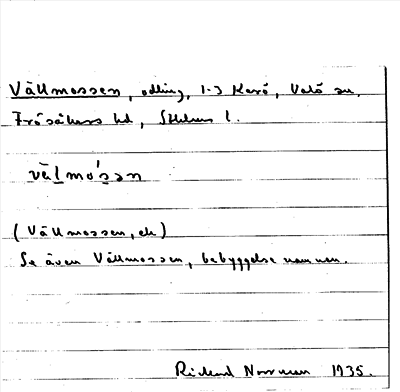 Vällmossen, odling, 1-3 Karö, Valö sn.
Frösåkers hd, Sthlms l.
vä̀lmo´s̲ən
(Vällmossen, ek)
Se även Vällmossen, bebyggelsenamnen.
Rickard Norrman 1935.